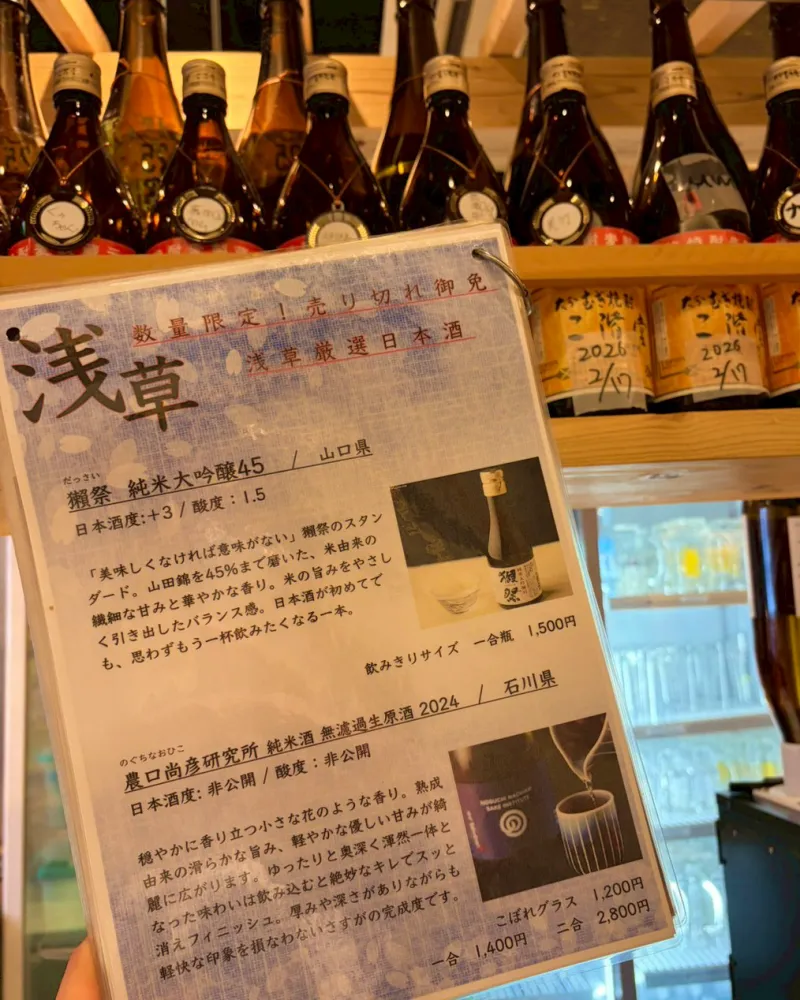 大分むぎ焼酎
二階堂
2026
2/17
大分むぎ焼酎
二階
2026
2/17
浅草
数量限定!売り切れ御免
浅草厳選日本酒
だっさい
獺祭 純米大吟醸45 / 山口県
日本酒度:+3 / 酸度:1.5
「美味しくなければ意味がない」獺祭のスタン
ダード。山田錦を45%まで磨いた、米由来の
繊細な甘みと華やかな香り。米の旨みをやさし
く引き出したバランス感。日本酒が初めてで
も、思わずもう一杯飲みたくなる一本。
獺祭
飲みきりサイズ 一合瓶 1,500円
のぐちなおひこ
農口尚彦研究所 純米酒 無濾過生原酒 2024 / 石川県
日本酒度:非公開 / 酸度:非公開
穏やかに香り立つ小さな花のような香り。熟成
由来の滑らかな旨み、軽やかな優しい甘みが綺
麗に広がります。ゆったりと奥深く渾然一体と
なった味わいは飲み込むと絶妙なキレでスッと
消えフィニッシュ。厚みや深さがありながらも
軽快な印象を損なわないさすがの完成度です。
NOGUCHI NAOHIKO
SAKE INSTITUTE
こぼれグラス 1,200円
一合 1,400円 二合 2,800円